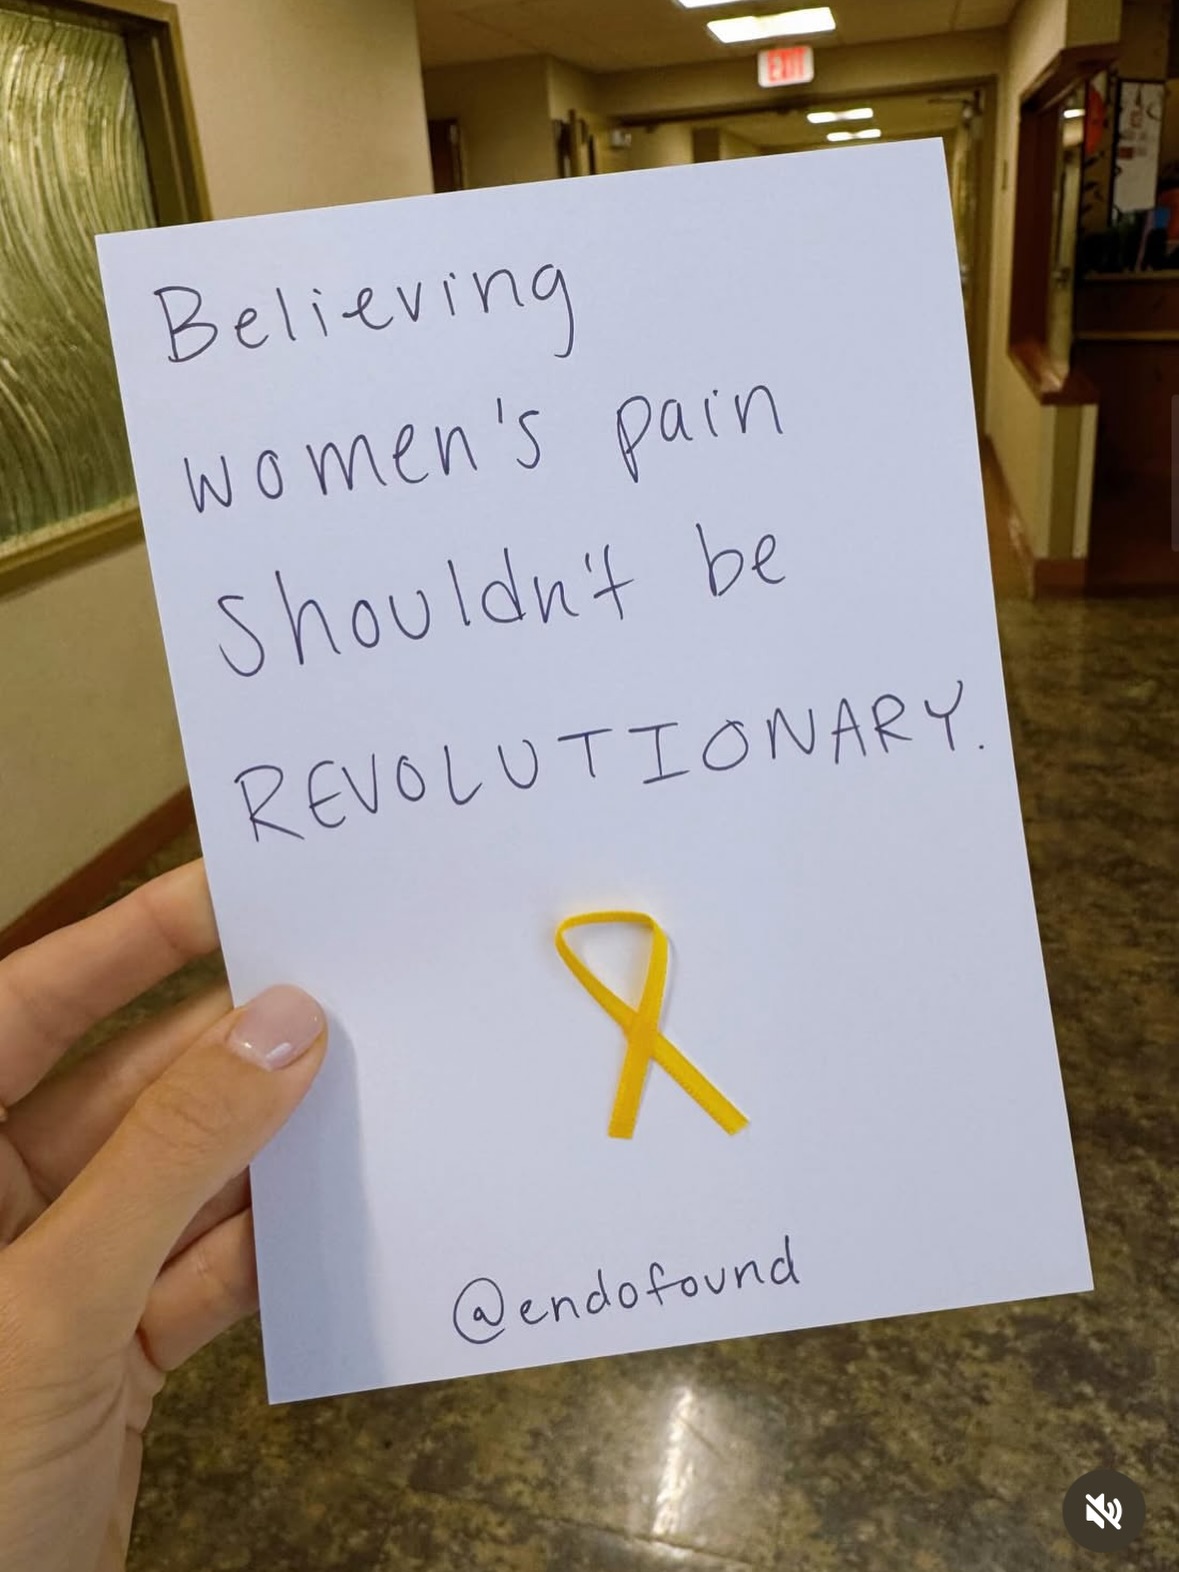 EXIT
Believing
women's pain
shouldn't be
REVOLUTIONARY.
@endofound